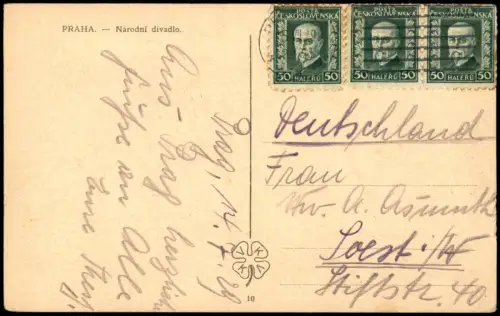 PRAHA. — Národní divadlo.
POSTA
ČESKOSLOVENSKÁ
50 HALÉŘŮ 50
POSTA
ČESKOSLOVENSKÁ
50 HALÉŘŮ 50
POSTA
ČESKOSLOVENSKÁ
50 HALÉŘŮ 50
Prag, 14. 7. 29
Aus Prag herzliche
Grüße an Alle
Eure
Deutschland
Frau
Ww. A. Asmuth
Soest i/W
Stiftstr. 40
VKKV
16